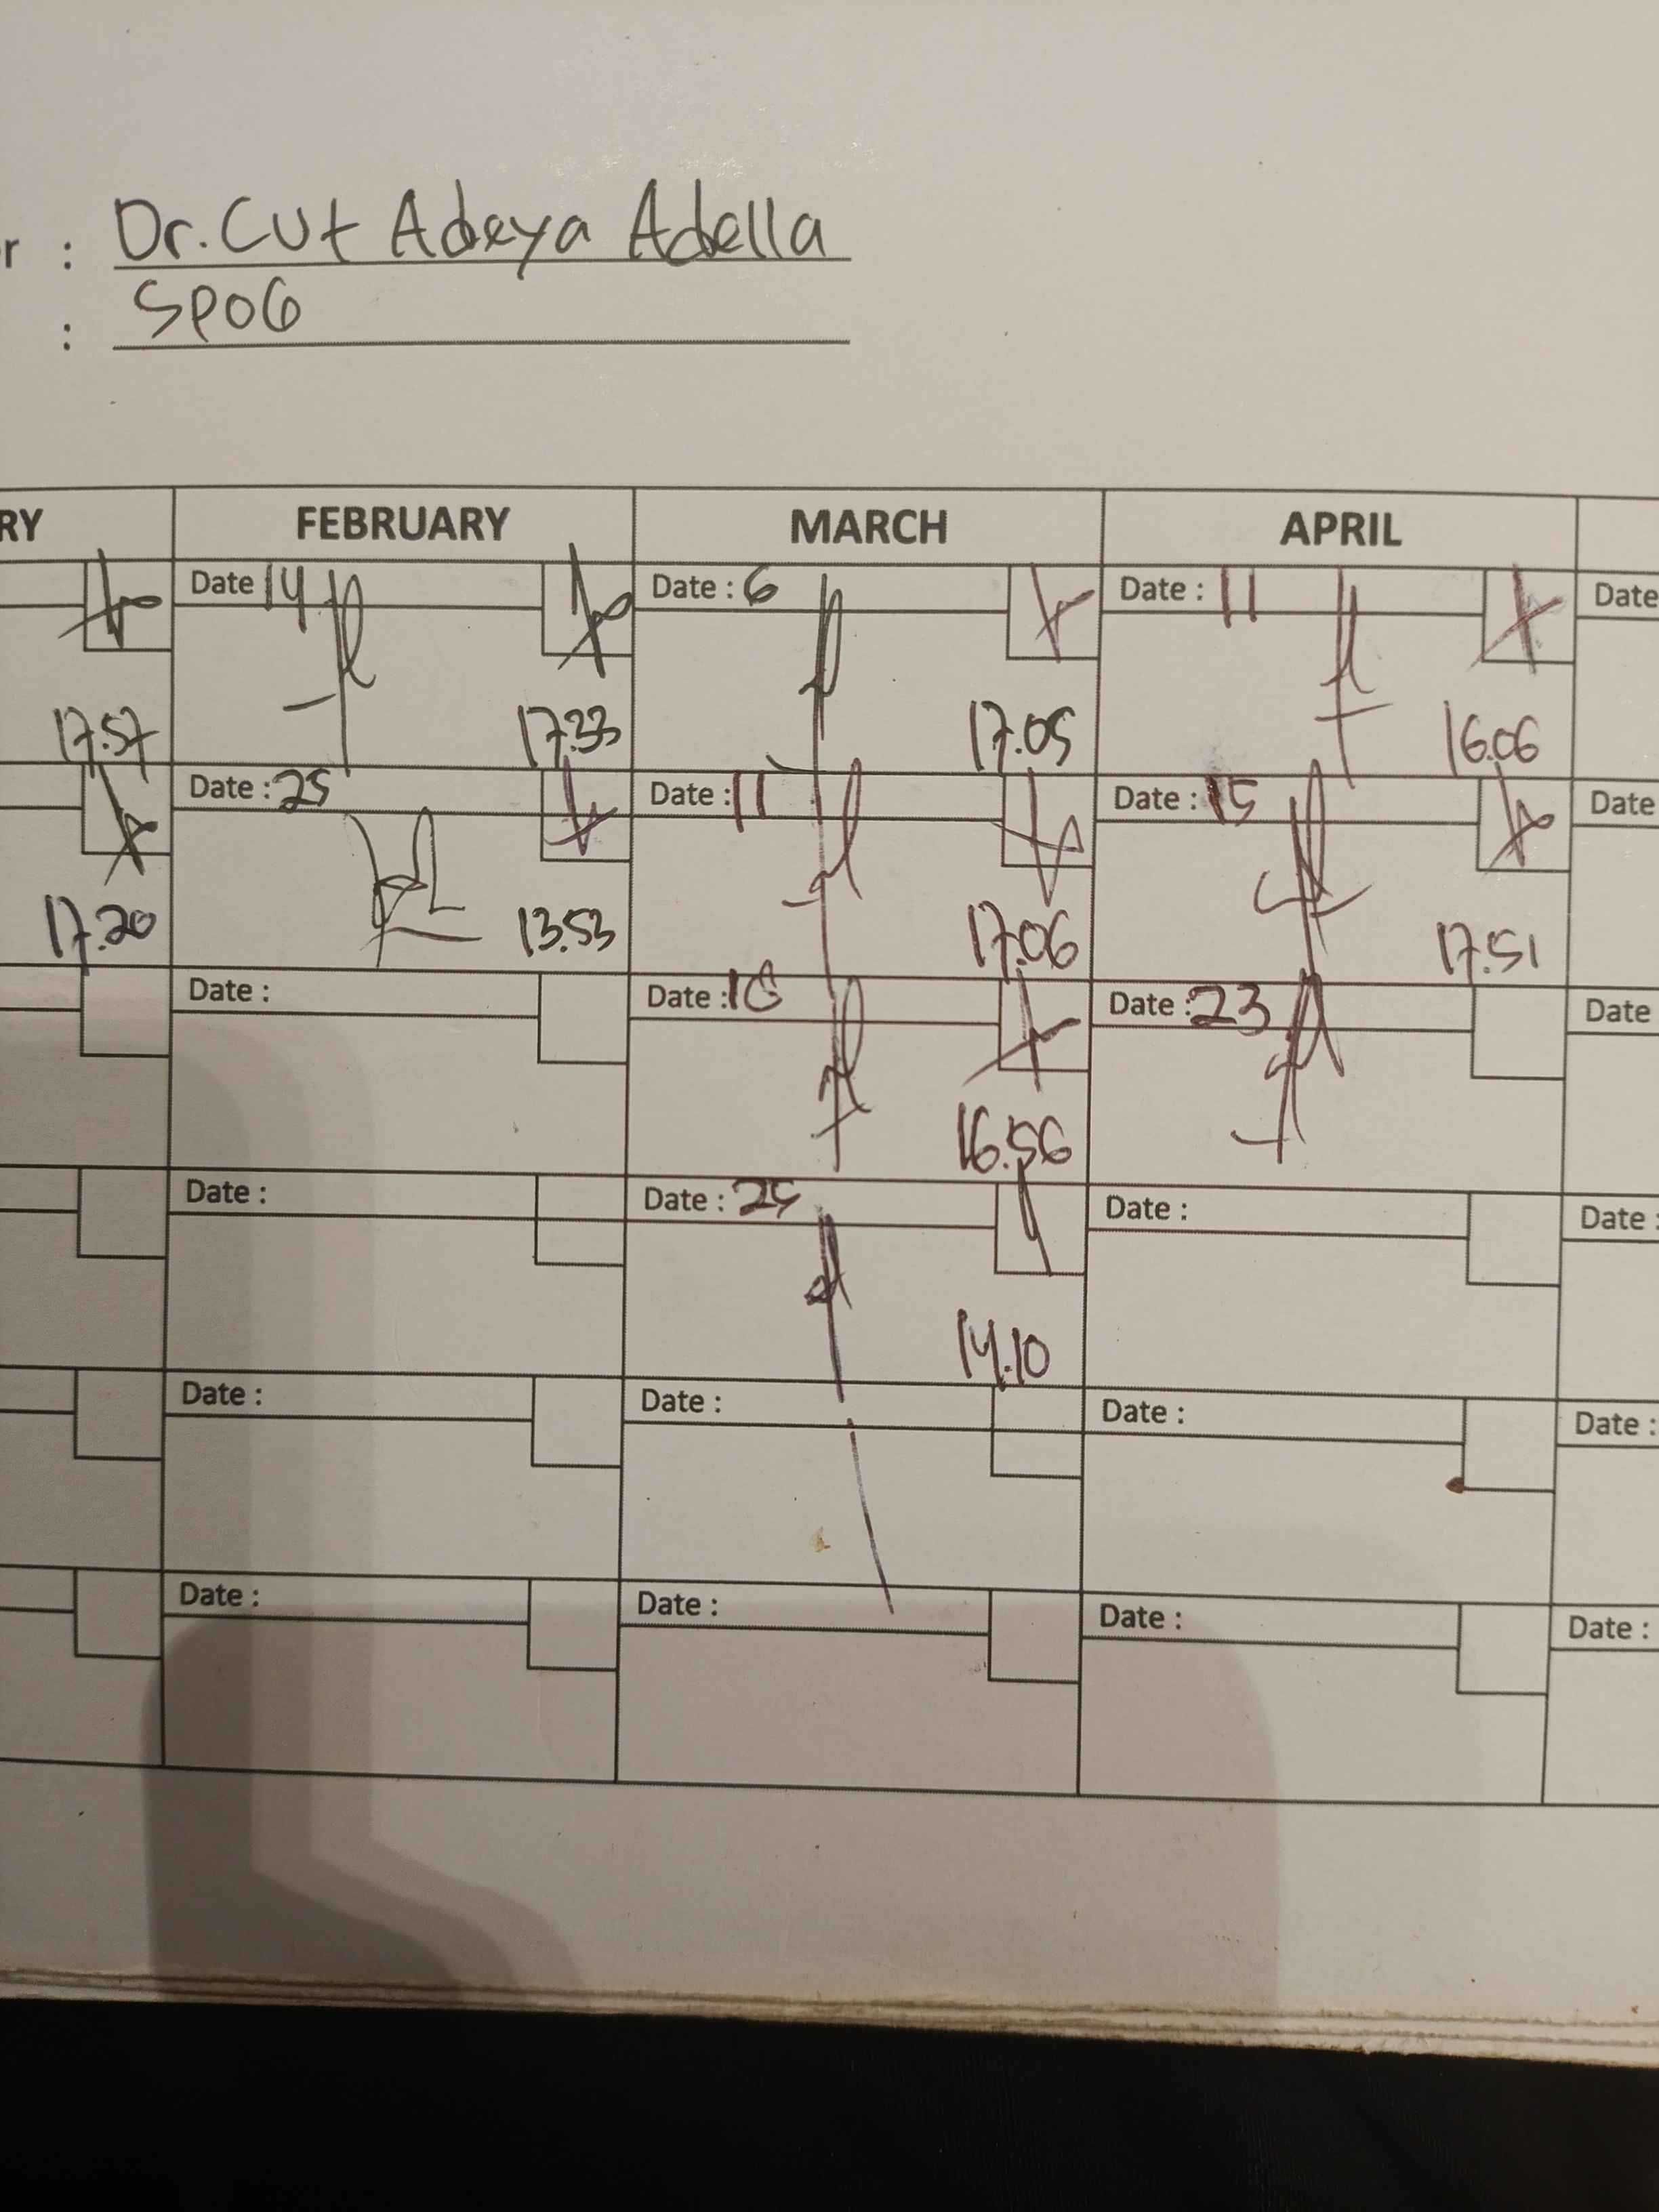 r : Dr. Cut Adeya Adella
: SPOG
RY FEBRUARY MARCH APRIL
Date 14 Date : 6 Date : 11 Date
17.57 17.33 17.05 16.06
Date : 25 Date : 11 Date : 15 Date
17.20 13.53 17.06 17.51
Date : Date : 16 Date : 23 Date
16.56
Date : Date : 25 Date : Date :
14.10
Date : Date : Date : Date :
Date : Date : Date : Date :